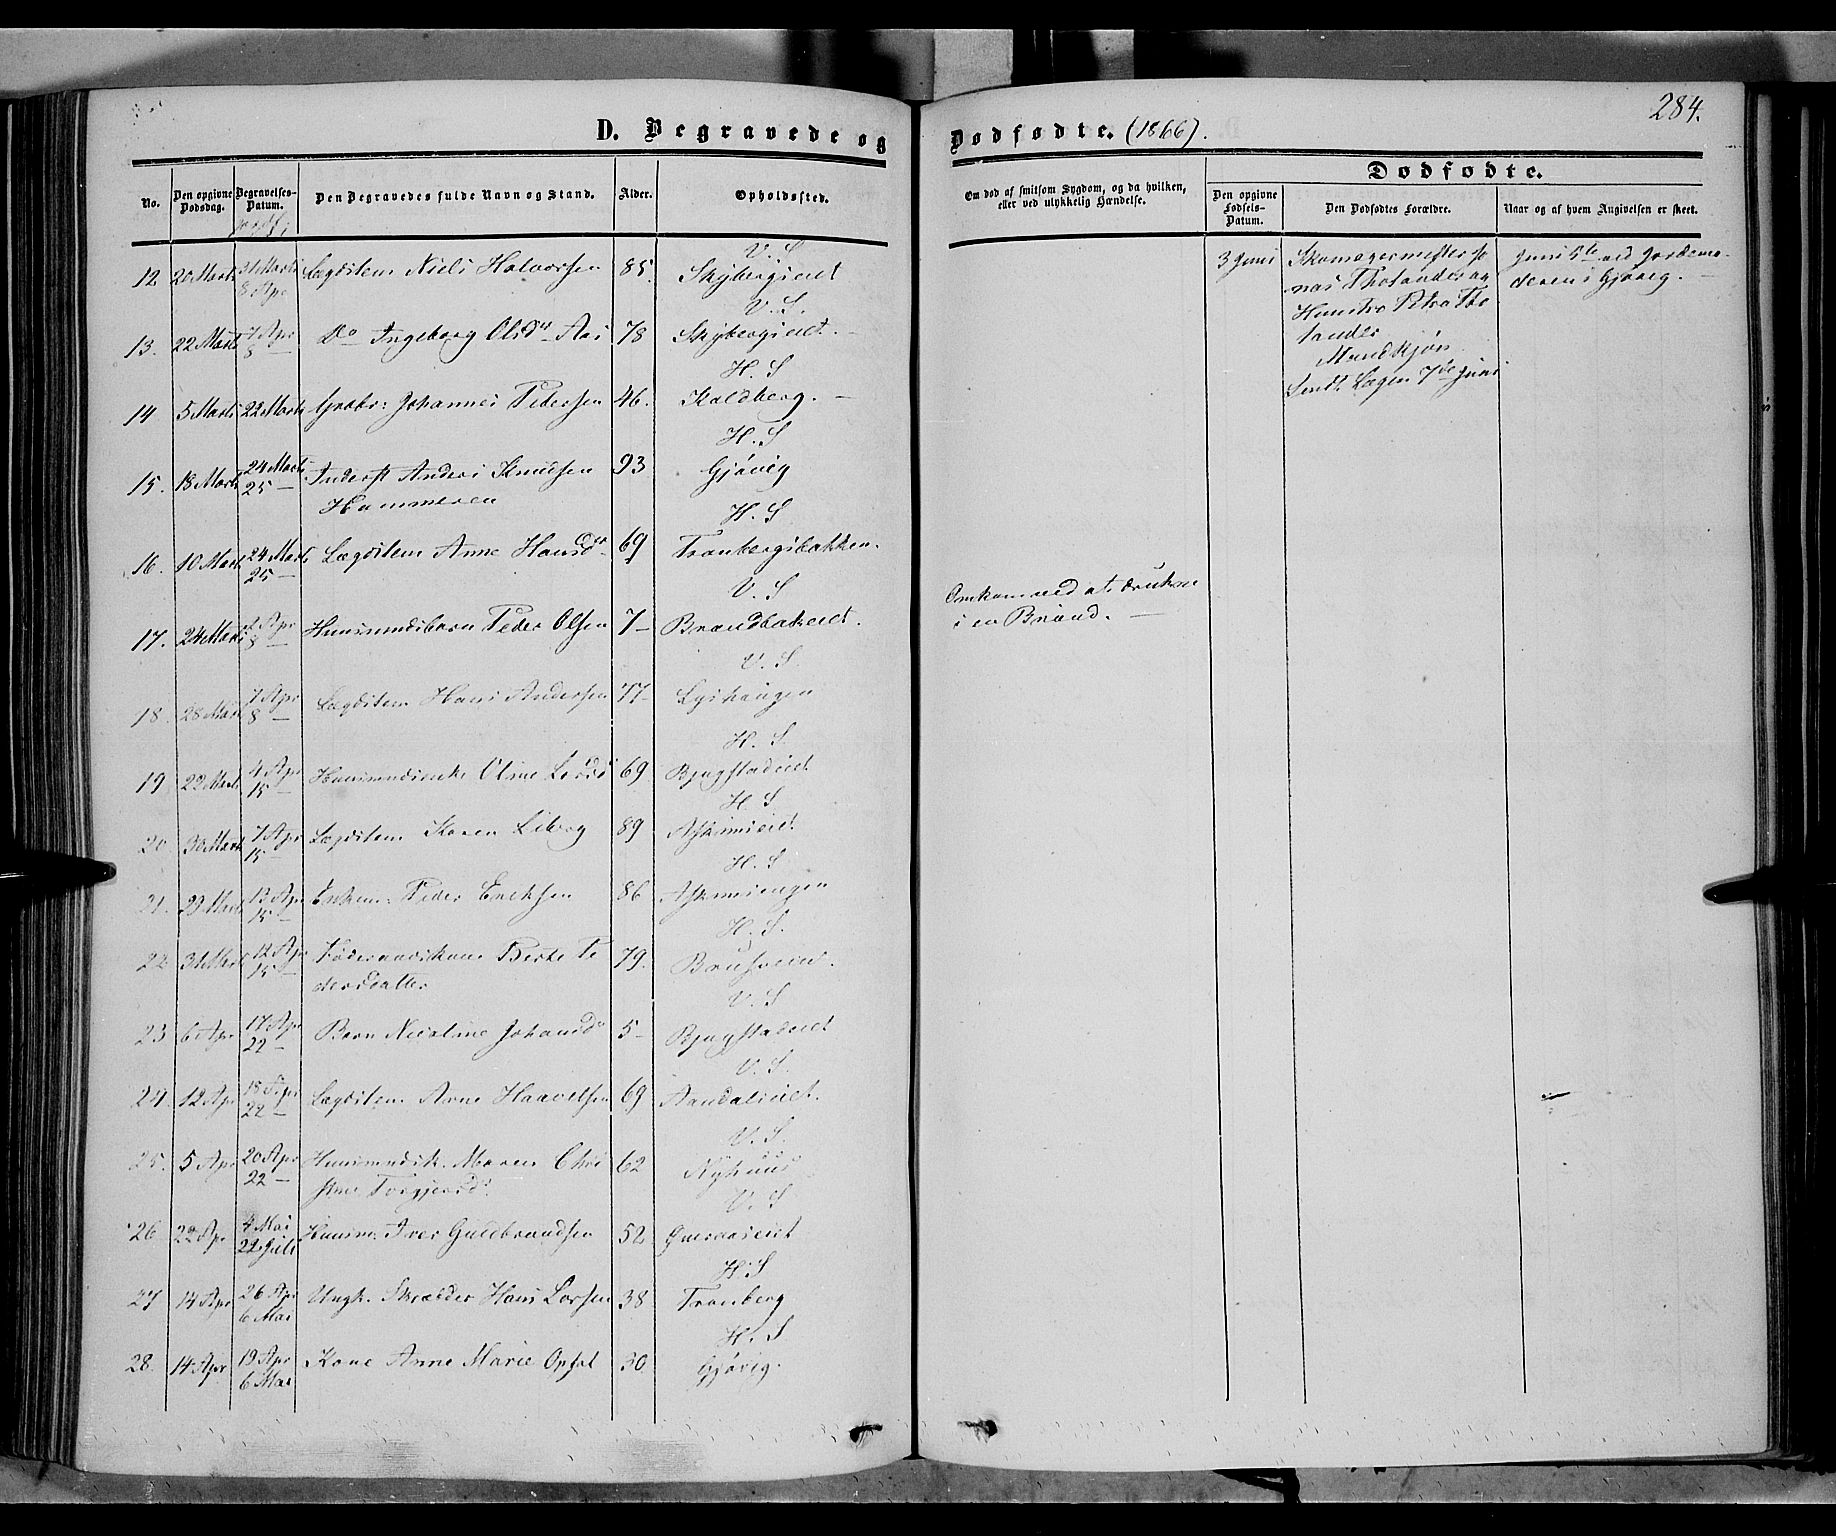 284.
D. Begravede og Dødfødte. (1866).
No.
Den opgivne Dødsdag.
Begravelses-Datum.
Den Begravedes fulde Navn og Stand.
Alder.
Opholdssted.
Om død af smitsom Sygdom, og da hvilken,
eller ved ulykkelig Hændelse.
Dødfødte.
Den opgivne Fødsels-Datum.
Den Dødfødtes Forældre.
Naar og af hvem Angivelsen er skeet.
V. S
12 20 Marts 31 Marts 8 Apr Lægdslem Niels Halvorsen 85. Skybergseiet
V. S.
13. 22 Marts 7 Apr 8 — Do Ingeborg Olsdr Aas 78 Skybergseiet. —
H. S
14 5 Marts 22 Marts Gaabr: Johannes Pedersen 46. Kaldberg. —
H. S
15. 18 Marts 24 Marts 25 — Inderst Anders Knudsen 93 Gjøvig
Hammeren
H. S
16. 10 Marts 24 Marts 25 — Lægdslem Anne Hansdr 69 Tranbergsbakken.
V. S
17. 24 Marts 7 Apr 8 — Huusmndsbarn Peder Olsen 7 — Brændbakeiet.
Omkom ved at drukne
i en Brønd. —
V. S.
18. 28 Marts 7 Apr 8 — Lægdslem Hans Andersen 77 — Lyshaugen
H. S.
19 22 Marts 4 Apr 15 — Huusmndsenke Oline Larsd 69 Bjugstadeiet
H. S
20 30 Marts 7 Apr 15 — Lægdslem Karen Liberg 89 Askimseiet
H. S
21. 29 Marts 13 Apr 15 — Enkem: Peder Eriksen 86 Askimsengen
H. S.
22 31 Marts 14 Apr 15 — Føderaadskone Berte Pe 79. Brusveen.
dersdatter
V. S
23 6 Apr 17 Apr 22 — Barn Nicoline Johansd 5 — Bjugstadeiet
V. S.
24. 12 Apr 18 Apr 22 — Lægdslem Arne Haavelsen 69 Aandalseiet.
V. S.
25. 5 Apr 20 Apr 22 — Huusmndsk. Maren Chri 62 Nyhuus
stine Torgjersd.
V. S
26 22 Apr 4 Mai 22 Juli Huusm: Iver Guldbrandsen 52
H. S
27 14 Apr 26 Apr 6 Mai Ungk. Skrædder Hans Larsen 38 Tranberg
H. S
28. 14 Apr 19 Apr 6 Mai Kone Anne Marie Opsal 30 Gjøvig.
3 Juni
Skomagermester Jo
nas Tholander og
Hustro Petra Tho
lander
Mandkjøn
Sendt Lægen 7de Juni
Juni 5te ved Jordemo-
deren i Gjøvig. —